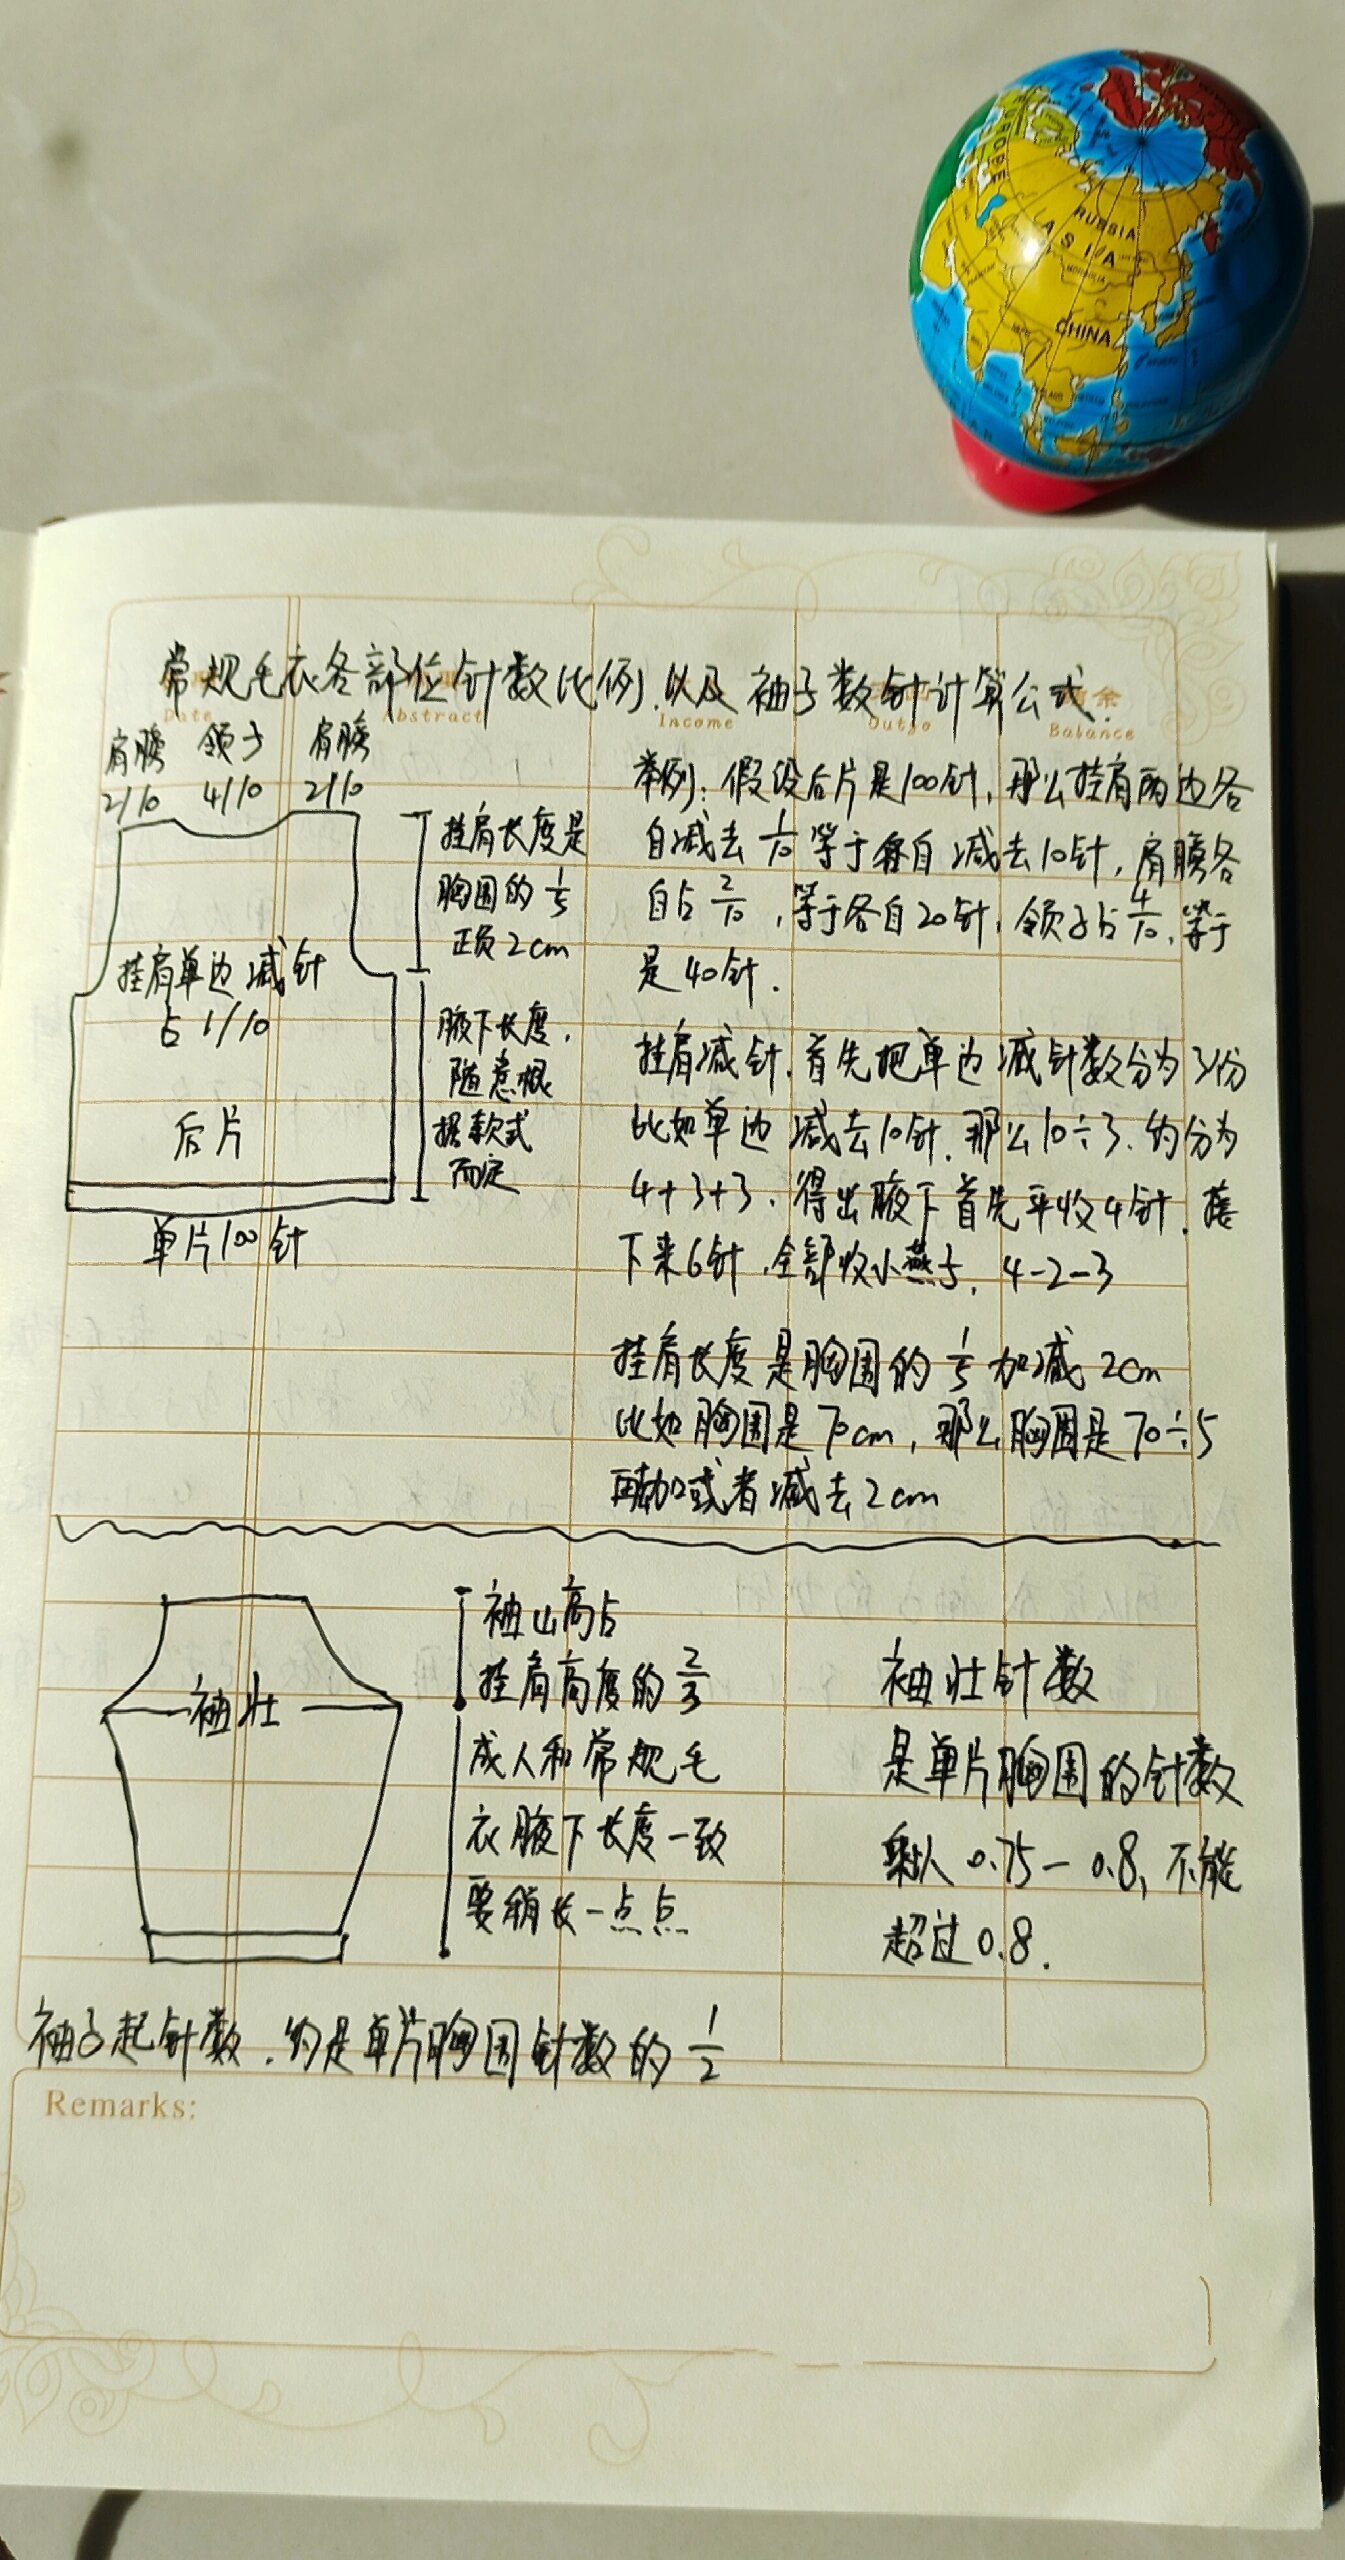 EUROPE
RUSSIA
ASIA
MONGOLIA
CHINA
常规毛衣各部位针数比例.以及袖子数针计算公式.
Date Abstract Income Outgo 余
Balance
肩膀 领子 肩膀
2/10 4/10 2/10
挂肩长度是
胸围的1/5
正负2cm
挂肩单边减针
占1/10
腋下长度,
随意根
据款式
而定
后片
单片100针
举例:假设后片是100针,那么挂肩两边各
自减去1/10等于各自减去10针,肩膀各
自占2/10,等于各自20针,领子占4/10,等于
是40针.
挂肩减针.首先把单边减针数分为3份
比如单边减去10针.那么10÷3.约分为
4+3+3.得出腋下首先平收4针.接
下来6针,全部收小燕子.4-2-3
挂肩长度是胸围的1/5加减2cm
比如胸围是70cm,那么胸围是70÷5
再加或者减去2cm
袖山高占
挂肩高度的2/3
袖壮
成人和常规毛
衣腋下长度一致
要稍长一点点
袖壮针数
是单片胸围的针数
乘以0.75-0.8,不能
超过0.8.
袖子起针数.约是单片胸围针数的1/2
Remarks: